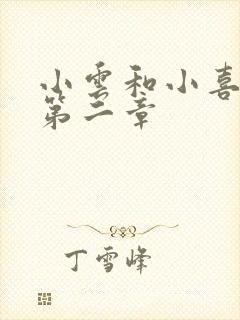 小雲和小喜
第二章
丁雪峰